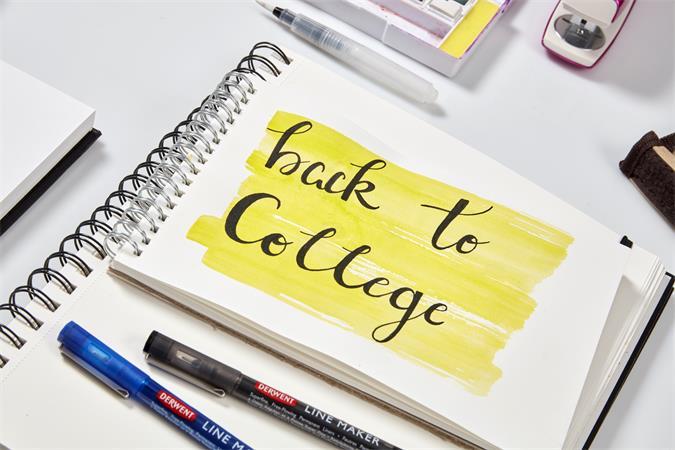 back to
College
DERWENT
LINE MAKER
DERWENT
LINE MAKER